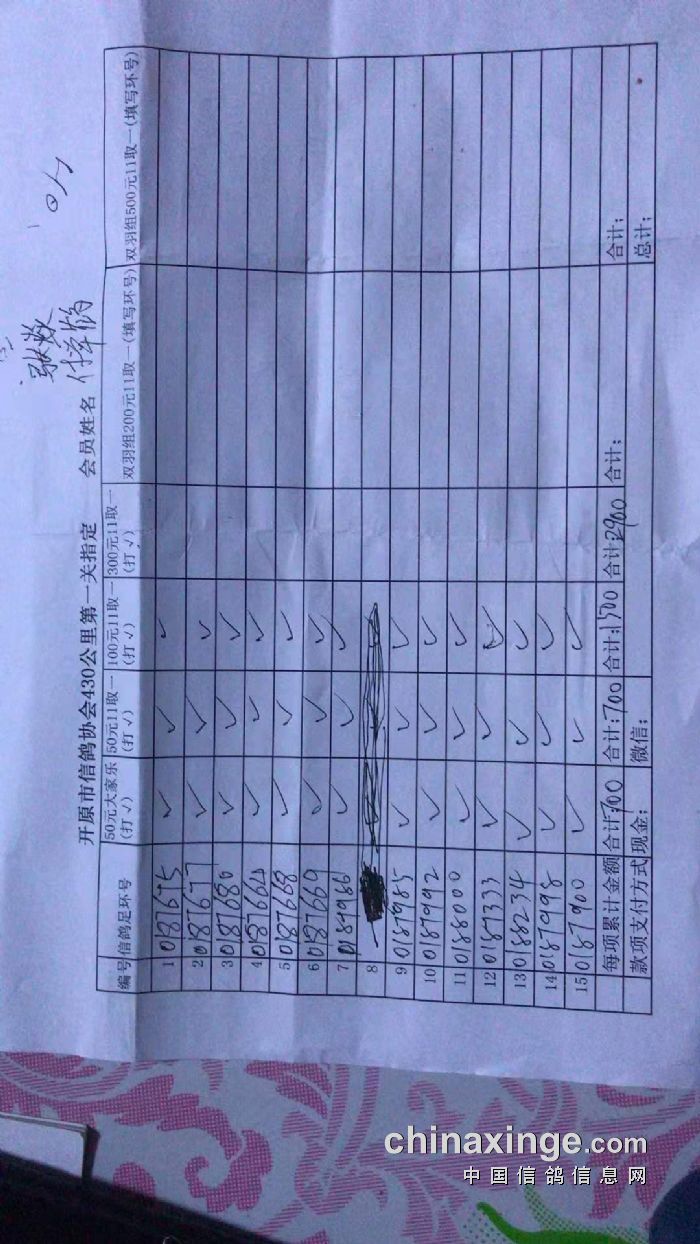 开原市信鸽协会430公里第一关指定 会员姓名 付军鹤
编号 信鸽足环号 50元大家乐(打√) 50元11取一(打√) 100元11取一(打√) 300元11取一(打√) 双羽组200元11取一(填写环号) 双羽组500元11取一(填写环号)
1 0187675 √ √ √
2 0187677 √ √ √
3 0187680 √ √ √
4 0187664 √ √ √
5 0187668 √ √ √
6 0187669 √ √ √
7 0187986 √ √ √
8
9 0187985 √ √ √
10 0187992 √ √ √
11 0188000 √ √ √
12 0187333 √ √ √
13 0188234 √ √ √
14 0187998 √ √ √
15 0187900 √ √ √
每项累计金额 合计:700 合计:700 合计:1500 合计2900 合计: 合计:
款项支付方式 现金: 微信: 总计:
chinaxinge.com
中国信鸽信息网